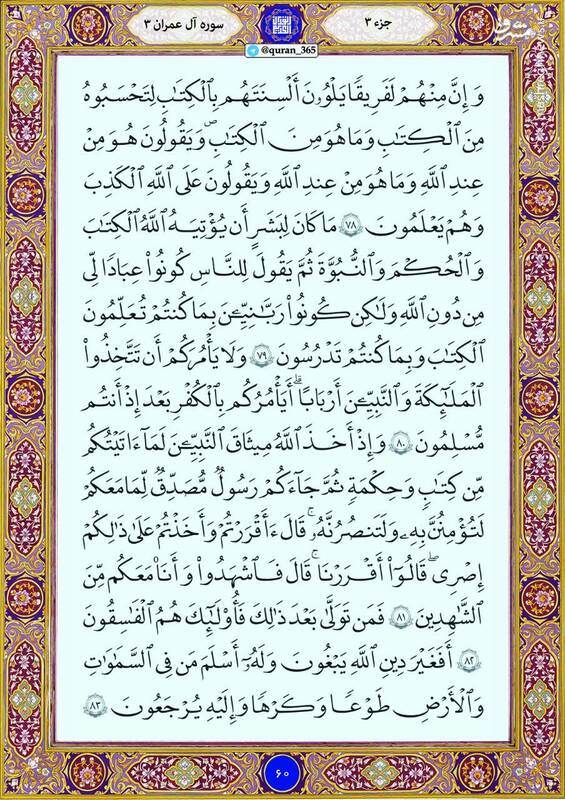 جزء ۳
سوره آل عمران ۳
@quran_365
وَإِنَّ مِنْهُمْ لَفَرِيقًا يَلْوُۥنَ أَلْسِنَتَهُم بِالْكِتَابِ لِتَحْسَبُوهُ
مِنَ الْكِتَابِ وَمَا هُوَ مِنَ الْكِتَابِ وَيَقُولُونَ هُوَ مِنْ
عِندِ اللَّهِ وَمَا هُوَ مِنْ عِندِ اللَّهِ وَيَقُولُونَ عَلَى اللَّهِ الْكَذِبَ
وَهُمْ يَعْلَمُونَ ۷۸ مَا كَانَ لِبَشَرٍ أَن يُؤْتِيَهُ اللَّهُ الْكِتَابَ
وَالْحُكْمَ وَالنُّبُوَّةَ ثُمَّ يَقُولَ لِلنَّاسِ كُونُوا عِبَادًا لِّي
مِن دُونِ اللَّهِ وَلَٰكِن كُونُوا رَبَّانِيِّينَ بِمَا كُنتُمْ تُعَلِّمُونَ
الْكِتَابَ وَبِمَا كُنتُمْ تَدْرُسُونَ ۷۹ وَلَا يَأْمُرَكُمْ أَن تَتَّخِذُوا
الْمَلَائِكَةَ وَالنَّبِيِّينَ أَرْبَابًا ۗ أَيَأْمُرُكُم بِالْكُفْرِ بَعْدَ إِذْ أَنتُم
مُّسْلِمُونَ ۸۰ وَإِذْ أَخَذَ اللَّهُ مِيثَاقَ النَّبِيِّينَ لَمَا آتَيْتُكُم
مِّن كِتَابٍ وَحِكْمَةٍ ثُمَّ جَاءَكُمْ رَسُولٌ مُّصَدِّقٌ لِّمَا مَعَكُمْ
لَتُؤْمِنُنَّ بِهِ وَلَتَنصُرُنَّهُ ۚ قَالَ أَأَقْرَرْتُمْ وَأَخَذْتُمْ عَلَىٰ ذَٰلِكُمْ
إِصْرِي ۖ قَالُوا أَقْرَرْنَا ۚ قَالَ فَاشْهَدُوا وَأَنَا مَعَكُم مِّنَ
الشَّاهِدِينَ ۸۱ فَمَن تَوَلَّىٰ بَعْدَ ذَٰلِكَ فَأُولَٰئِكَ هُمُ الْفَاسِقُونَ
۸۲ أَفَغَيْرَ دِينِ اللَّهِ يَبْغُونَ وَلَهُ أَسْلَمَ مَن فِي السَّمَاوَاتِ
وَالْأَرْضِ طَوْعًا وَكَرْهًا وَإِلَيْهِ يُرْجَعُونَ ۸۳
۶۰